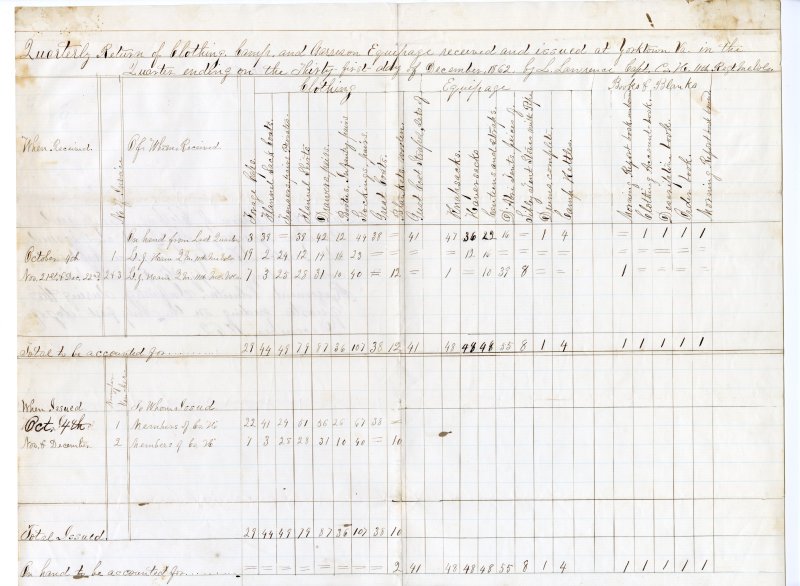 Quarterly Return of Clothing, Camp, and Garrison Equipage received and issued at Yorktown Va. in the
Quarter ending on the Thirty first day of December, 1862 by L. Lawrence Capt. Co. 11th Regt
Clothing Equipage Books & Blanks
When Received. No. of Invoice Of Whom Received
Forage Caps
Flannel Sack Coats
Trowsers pairs
Flannel Shirts
Drawers, pairs
Bootees, Infantry pairs
Stockings, pairs
Great Coats
Blankets woolen
Great Coat Straps, sets of
Knapsacks
Haversacks
Canteens and straps
Shelter Tents pieces of
Drums complete
Camp Kettles
Morning Report book
Clothing Account book
Descriptive book
Order book
Morning Report
On hand from Last Quarter 3 39 = 39 42 12 44 38 = 41 47 36 22 16 - 1 4 1 1 1 1
October 4th 1 19 2 24 12 14 14 23 = = 12 16
Nov. 21st & Dec. 22nd 2 & 3 7 3 25 28 31 10 40 = 12 1 - 10 39 8 1
Total to be accounted for 29 44 49 79 87 36 107 38 12 41 48 48 48 55 8 1 4 1 1 1 1 1
When Issued To Whom Issued
Oct. 4th 1 Members of Co. 22 41 24 51 56 26 67 38 =
Nov. & December 2 Members of Co. 7 3 25 28 31 10 40 = 10
Total Issued. 29 44 49 79 87 36 107 38 10
On hand to be accounted for = = = = = = = = 2 41 48 48 48 55 8 1 4 1 1 1 1 1